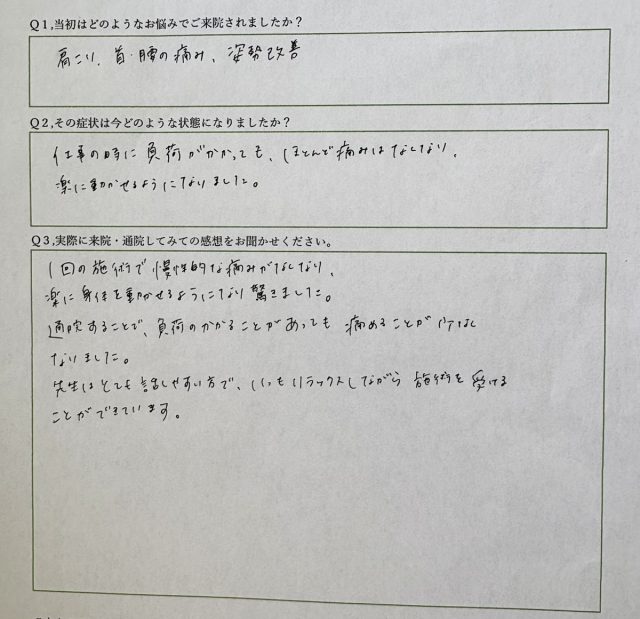 Q1,当初はどのようなお悩みでご来院されましたか？
肩こり、首・腰の痛み、姿勢改善
Q2,その症状は今どのような状態になりましたか？
仕事の時に負荷がかかっても、ほとんど痛みはなくなり、
楽に動かせるようになりました。
Q3,実際に来院・通院してみての感想をお聞かせください。
1回の施術で慢性的な痛みがなくなり、
楽に身体を動かせるようになり驚きました。
通院することで、負荷のかかることがあっても痛めることが
なりました。
先生はとても話しやすい方で、いつもリラックスしながら施術を受ける
ことができています。